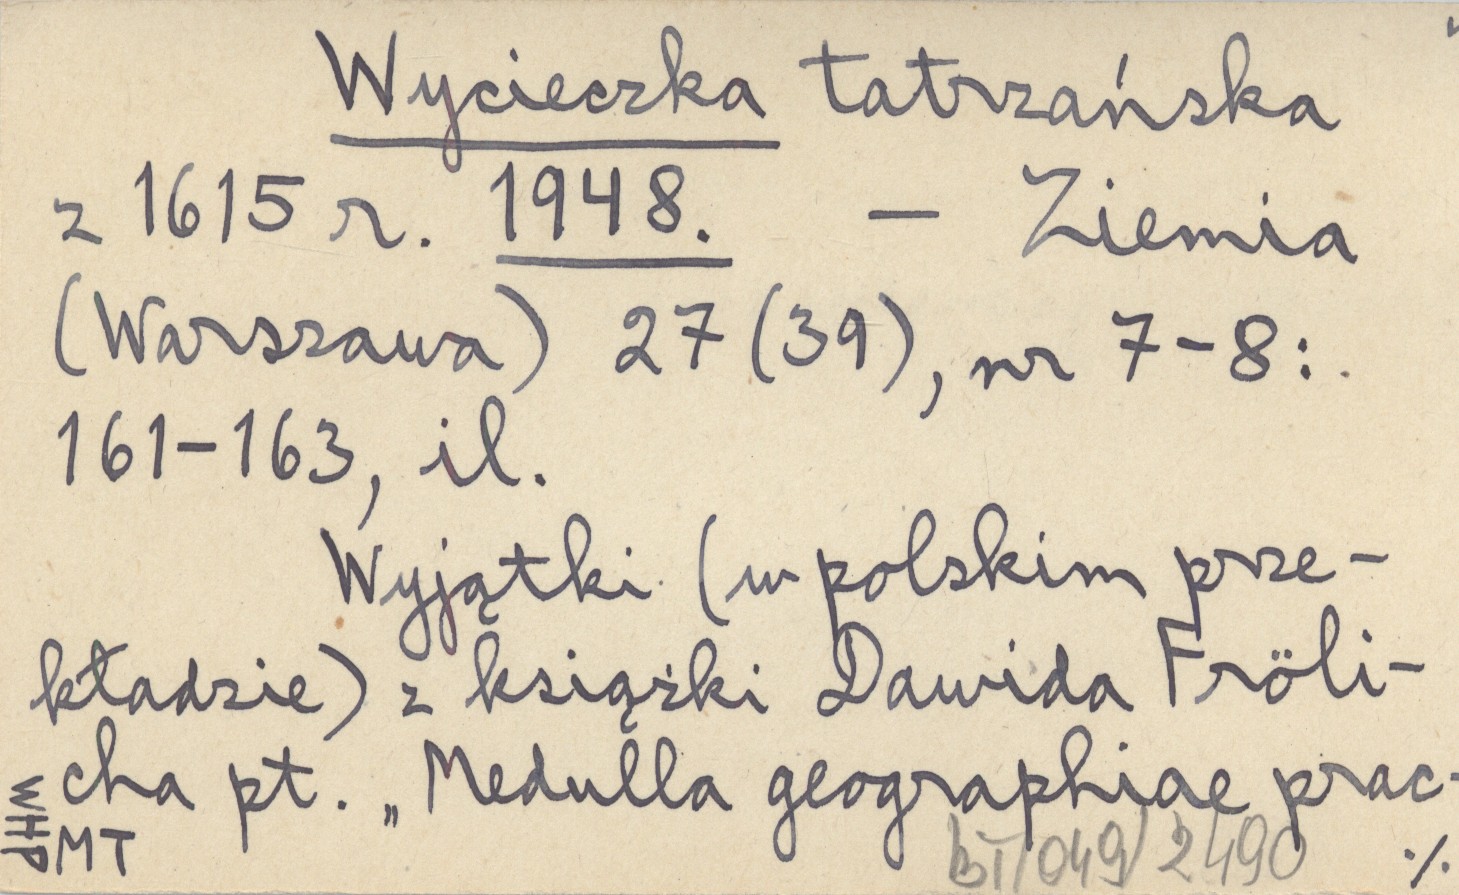 Wycieczka tatrzańska
z 1615 r. 1948. — Ziemia
(Warszawa) 27 (39), nr 7-8:
161-163, il.
Wyjątki (w polskim prze-
kładzie) z książki Dawida Fröli-
cha pt. „Medulla geographiae prac-
WHP
MT
BT/049/2490
./.